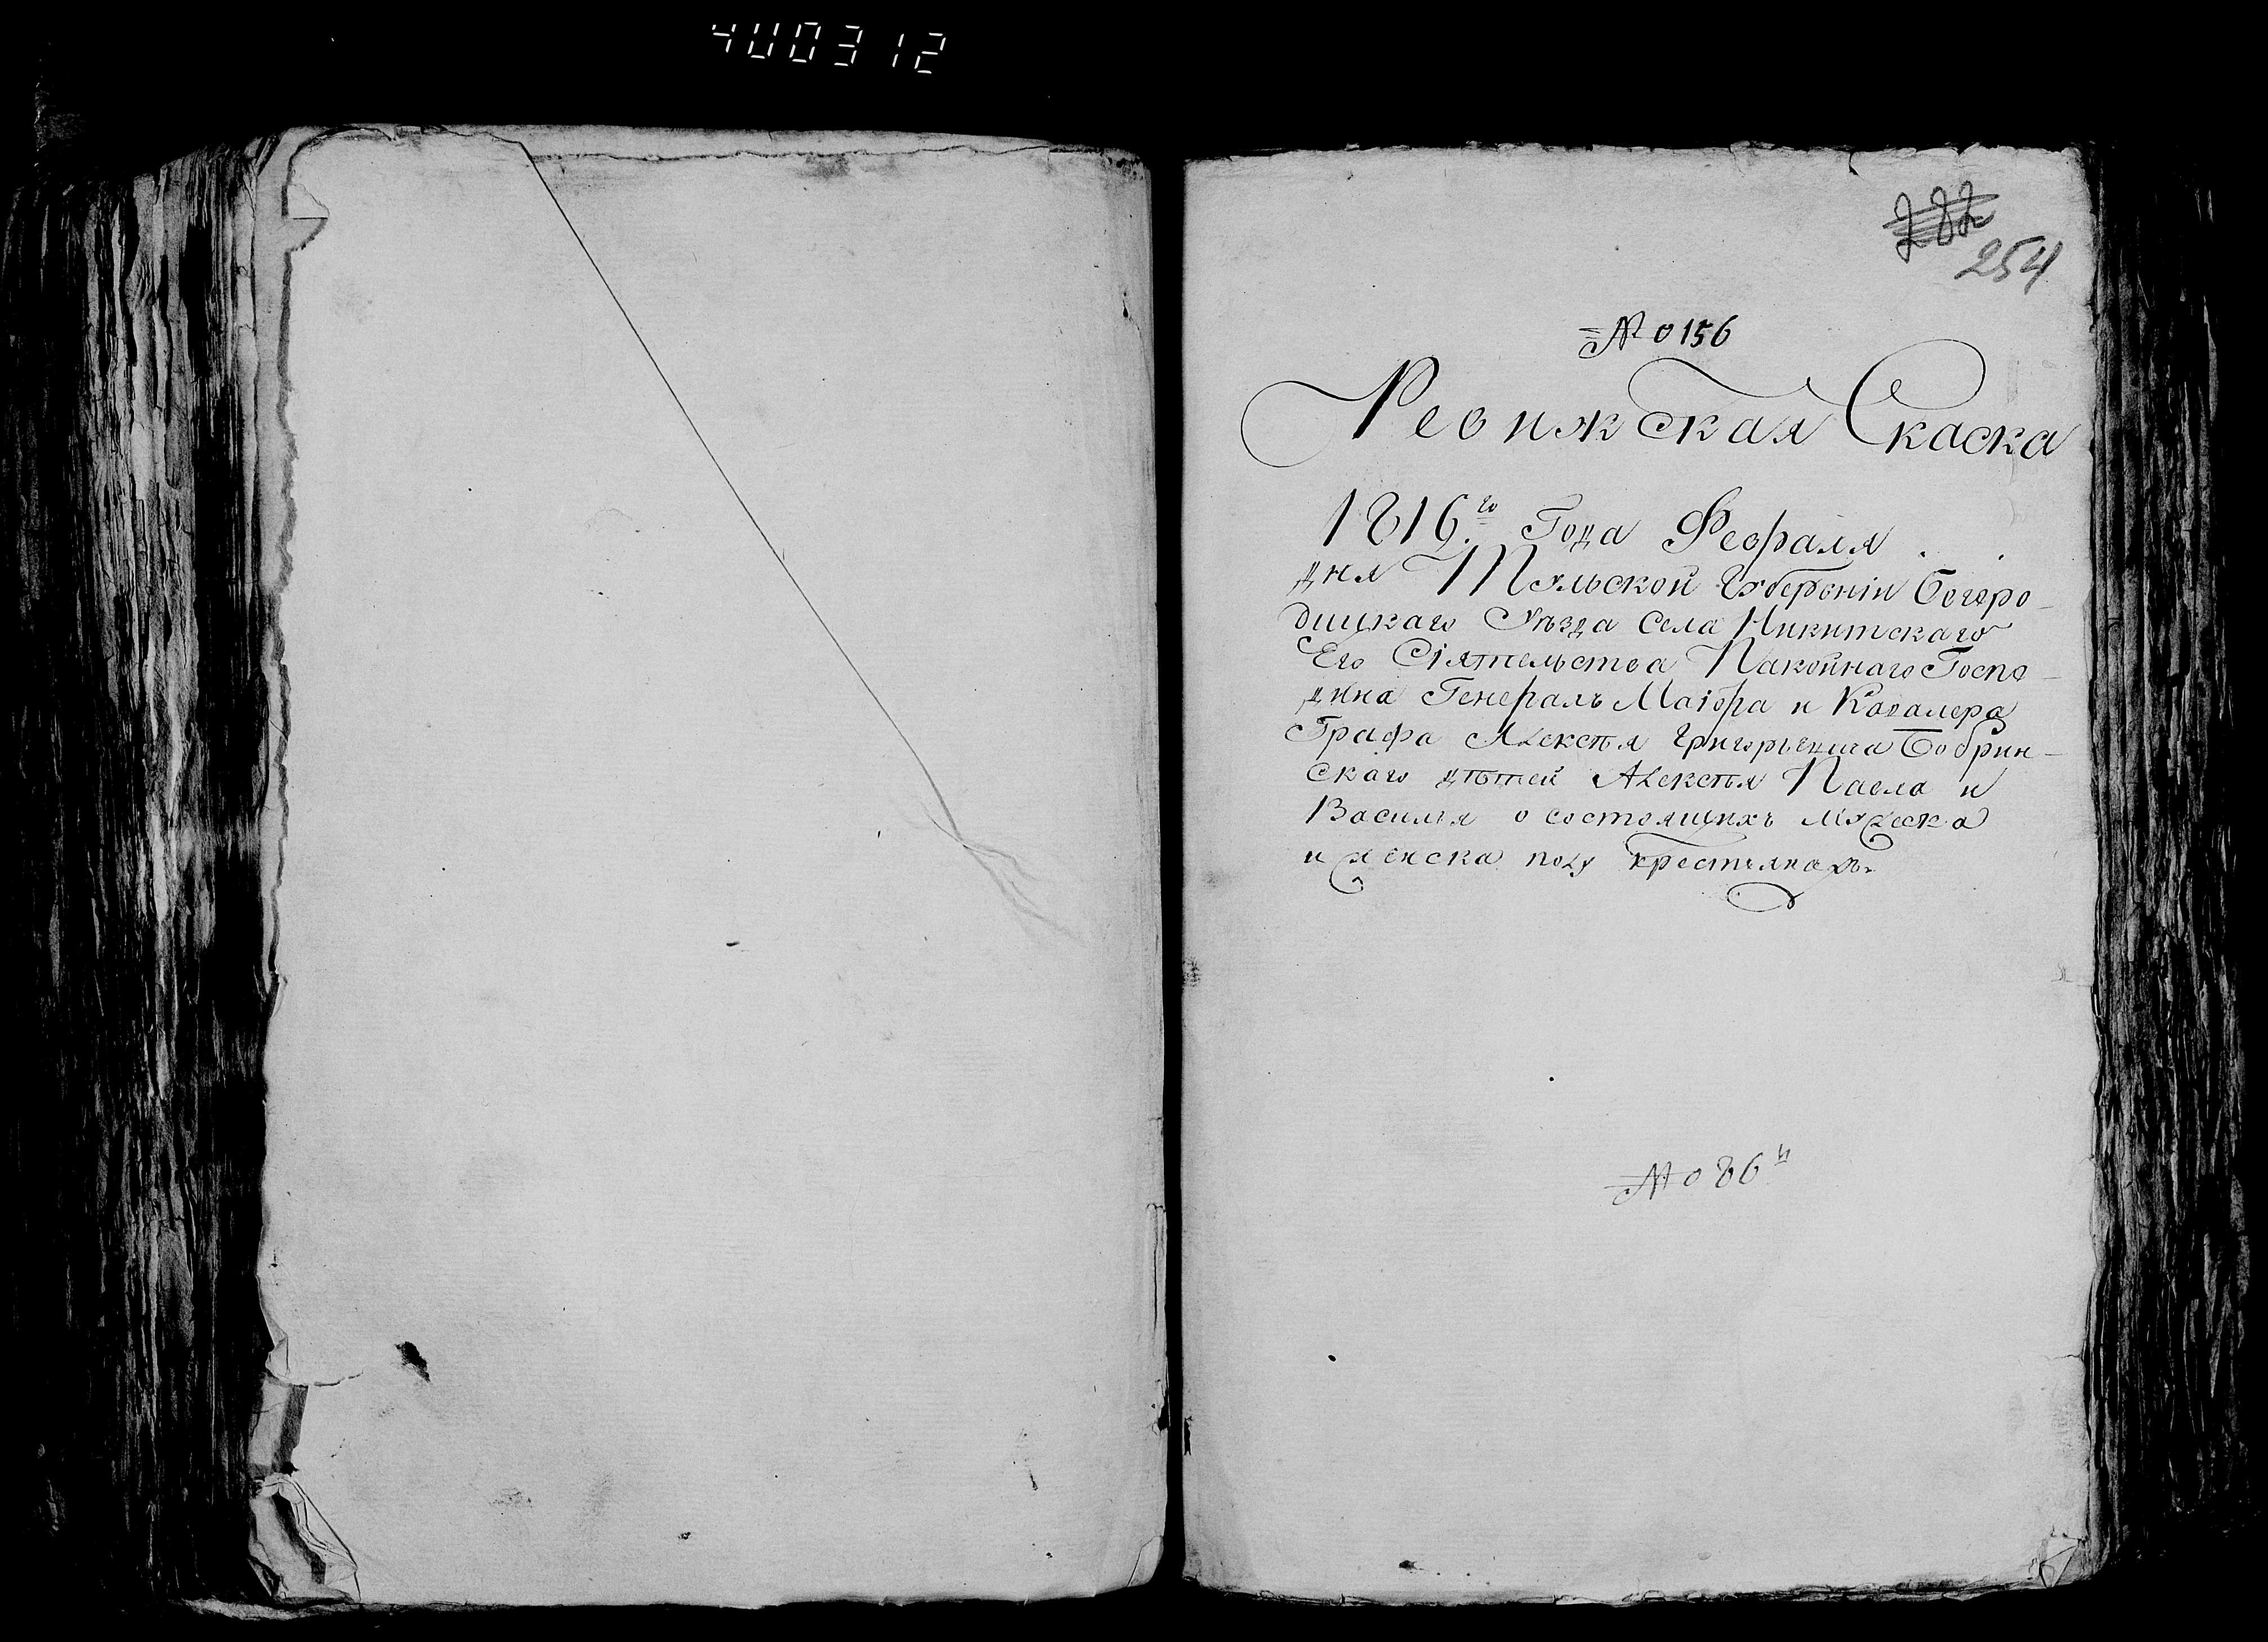 400312
282
254
№ 0156
Ревижская Скаска
1816.го Года Февраля . .
дня Тульской Губерніи Богоро-
дицкаго Уѣзда Села Никитскаго
Его Сіятельства Пакойнаго Госпо-
дина Генералъ Маіора и Кавалера
Графа Алексѣя Григорьевича Бобрин-
скаго дѣтей Алексѣя Павла и
Василья о состоящихъ мужеска
и женска полу крестьянахъ.
№ 086й